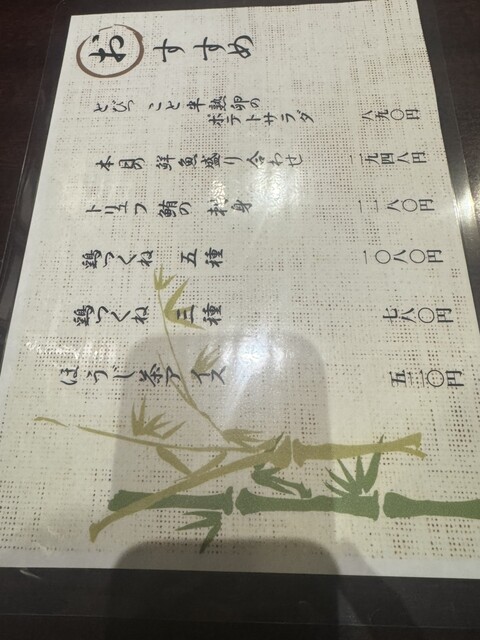 おすすめ
とびっこと半熟卵の
ポテトサラダ
八九〇円
本日の鮮魚盛り合わせ
トリュフ鮪の刺身
鶏つくね 五種
一〇八〇円
鶏つくね 三種
七八〇円
ほうじ茶アイス